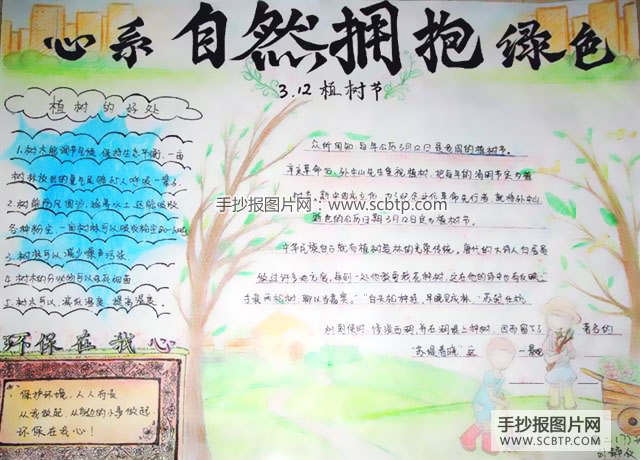 心系自然拥抱绿色
3.12植树节
植树的好处
1.树木能调节气候,保持生态平衡.一亩
树林放出的氧气足够
2.树能防风固沙,涵养水土,还能吸收
各种粉尘,一亩树林可以吸收粉尘
3.树林可以减少噪音污染
4.树木的分泌物可以杀死细菌
5.树木可以,减低温度,提高湿度。
环保在我心
保护环境,人人有责
从我做起,从身边的小事做起
环保在我心!
众所周知每年公历3月12日是我国的植树节。
辛亥革命后,孙中山先生重视植树,把每年的清明节定为植
新中国成立后,为了纪念这位革命先行者,就将孙中山
逝世的公历日期3月12日定为植树节。
中华民族自古就有植树造林的光荣传统。唐代的大诗人白居易
做过许多地方官,每到一处他都要栽花种树,
手栽两松树,聊以当嘉宾。"
别
著名的
"苏堤春晓"
手抄报图片网:www.scbtp.com
手抄报图片网
WWW.SCBTP.COM